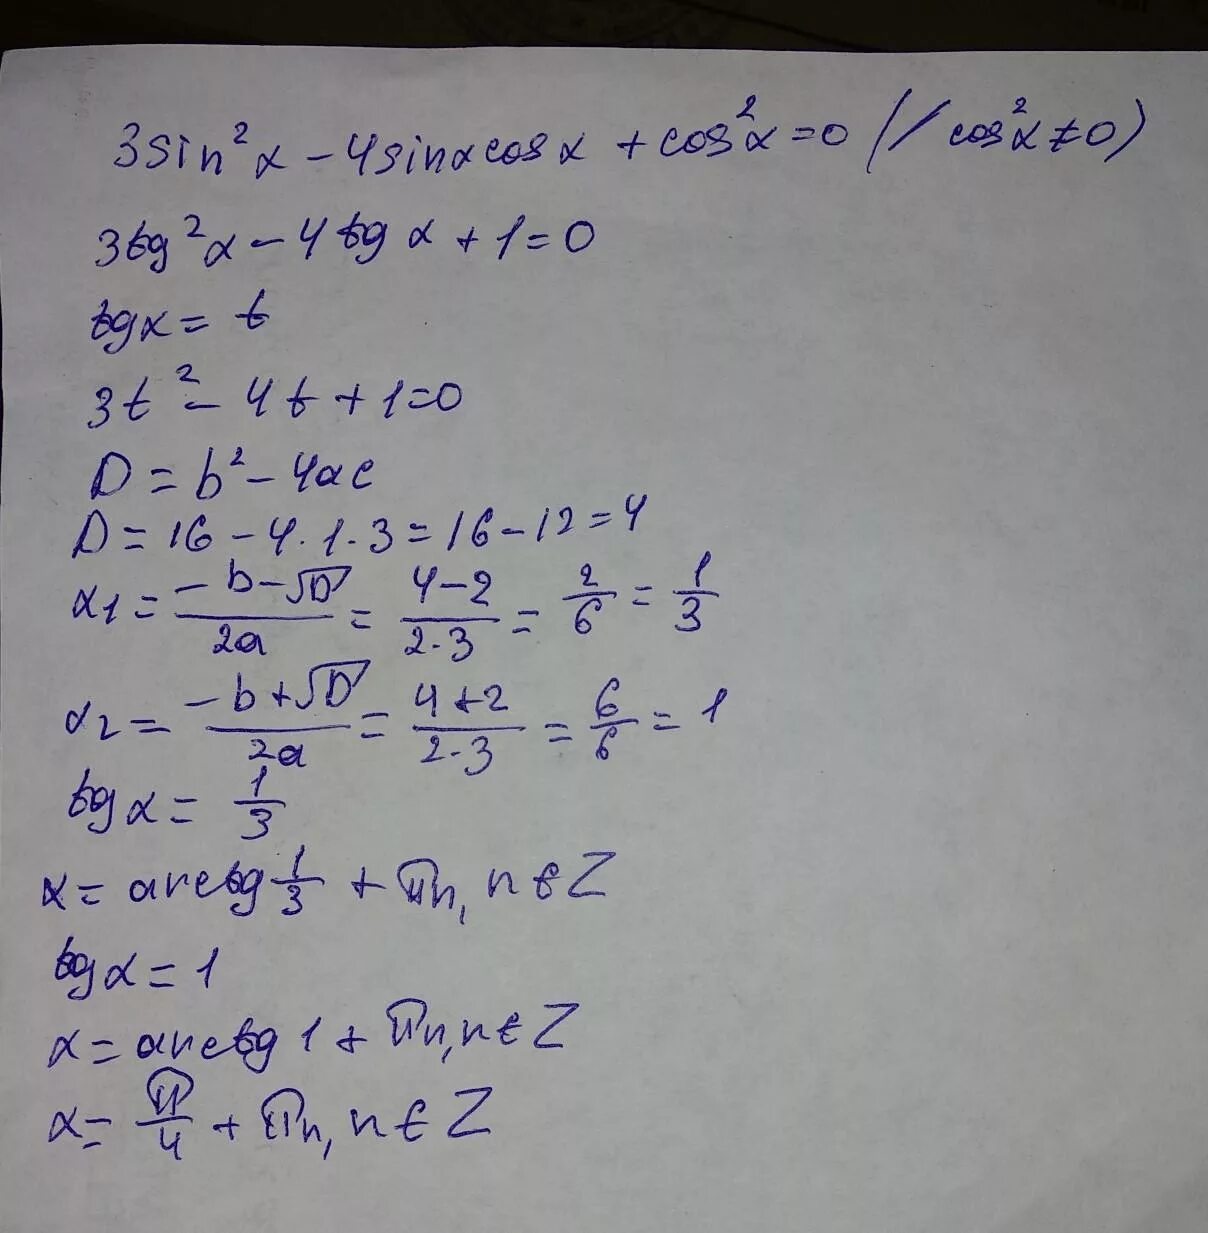 3sin²x - 4sinxcosx + cos²x = 0 (/ cos²x ≠ 0)
3tg²x - 4tgx + 1 = 0
tgx = t
3t² - 4t + 1 = 0
D = b² - 4ac
D = 16 - 4·1·3 = 16 - 12 = 4
x₁ = (-b-√D)/2a = (4-2)/(2·3) = 2/6 = 1/3
x₂ = (-b+√D)/2a = (4+2)/(2·3) = 6/6 = 1
tgx = 1/3
x = arctg 1/3 + πn, n ∈ Z
tgx = 1
x = arctg 1 + πn, n ∈ Z
x = π/4 + πn, n ∈ Z